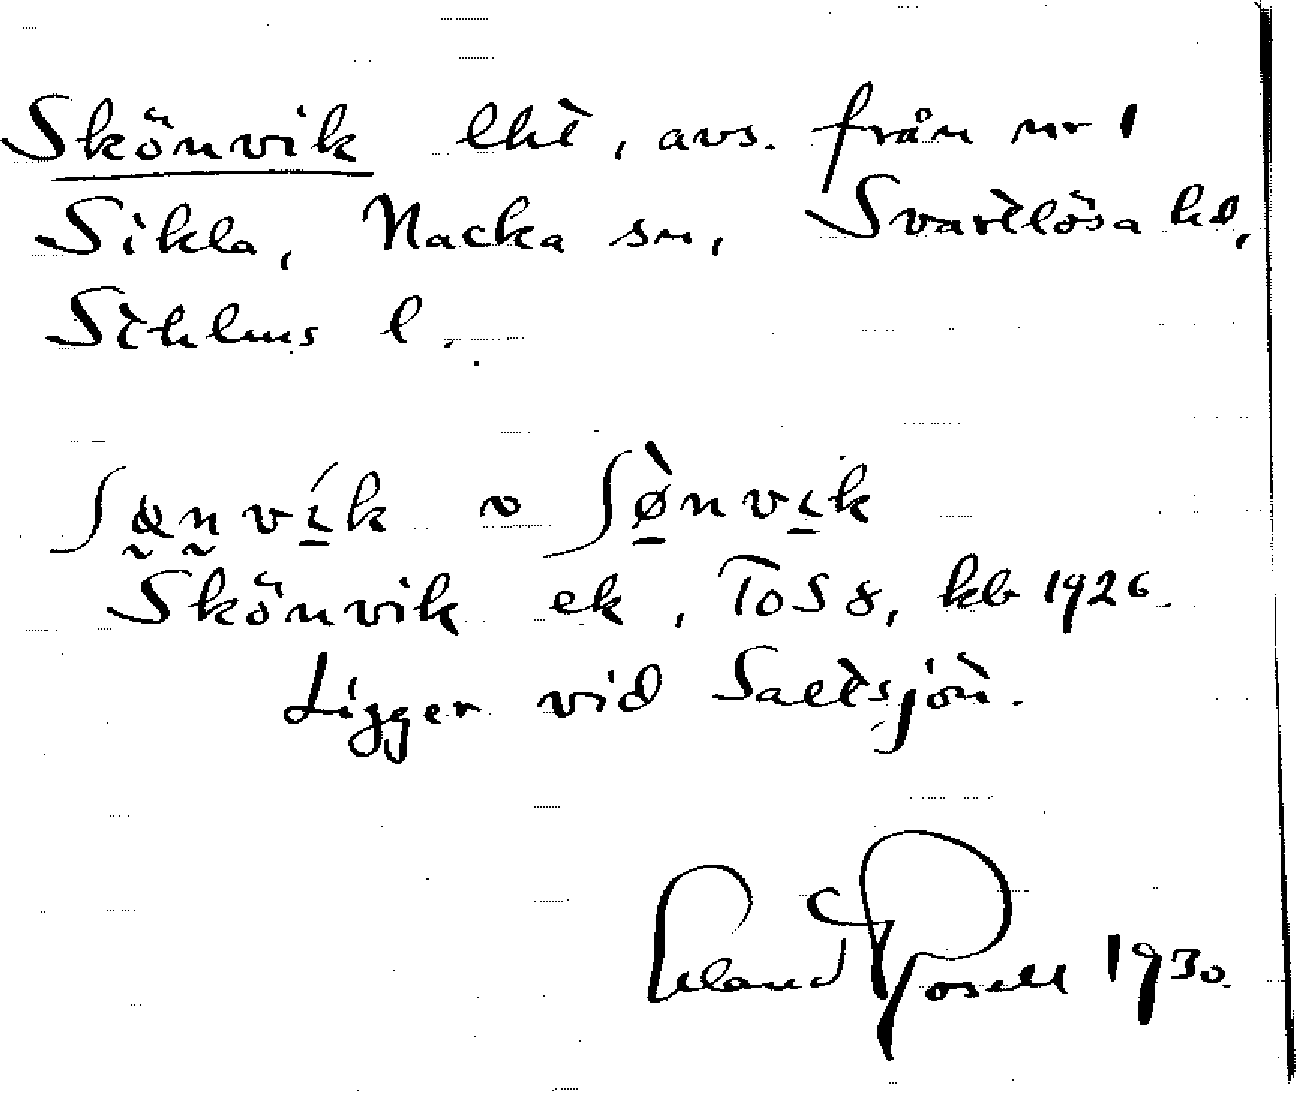 Skönvik lht, avs. från nr 1
Sikla, Nacka sn, Svartlösa hd,
Sthlms l.
ʃønvík ∾ ʃø̀nvik
Skönvik ek, ToS 8, kb 1926.
Ligger vid Saltsjön.
Erland Rosell 1930